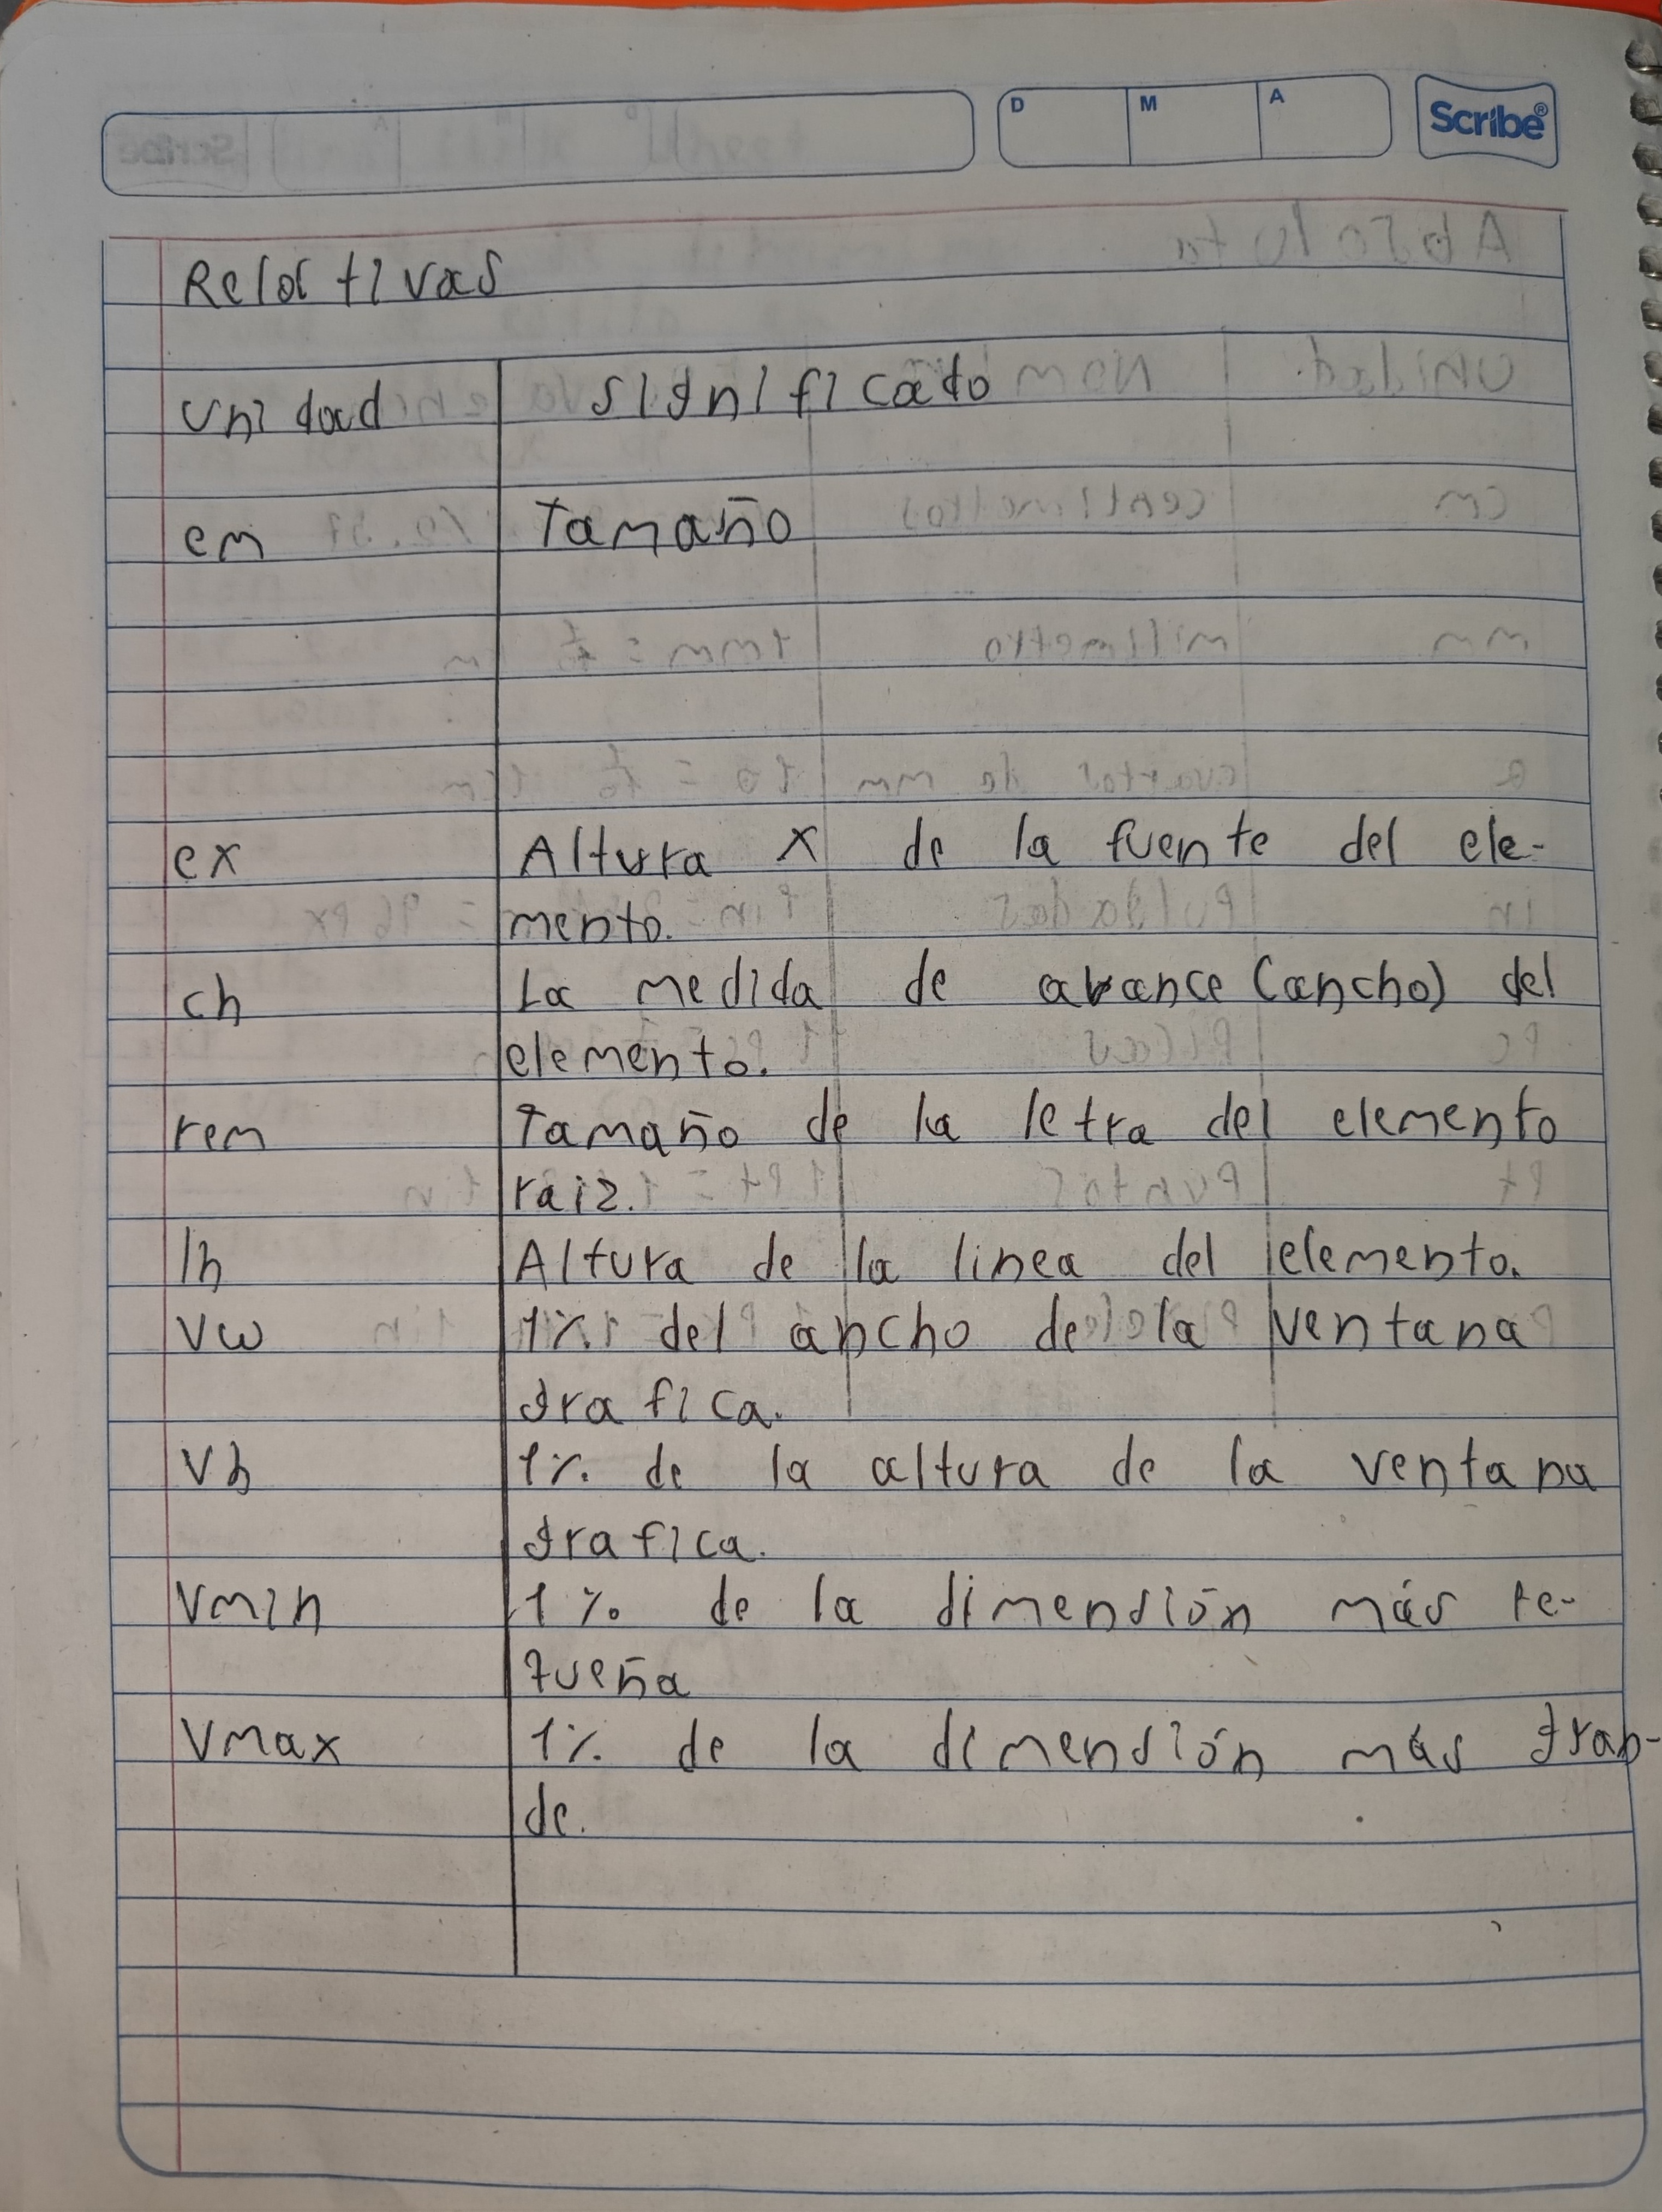 D M A Scribe®
Relativas
Unidad significado
em Tamaño
ex Altura x de la fuente del ele-
mento.
ch La medida de avance (ancho) del
elemento.
rem Tamaño de la letra del elemento
raiz.
lh Altura de la linea del elemento.
vw 1% del ancho de la ventana
grafica.
vh 1% de la altura de la ventana
grafica.
vmin 1% de la dimensión más pe-
queña
vmax 1% de la dimensión más gran-
de.